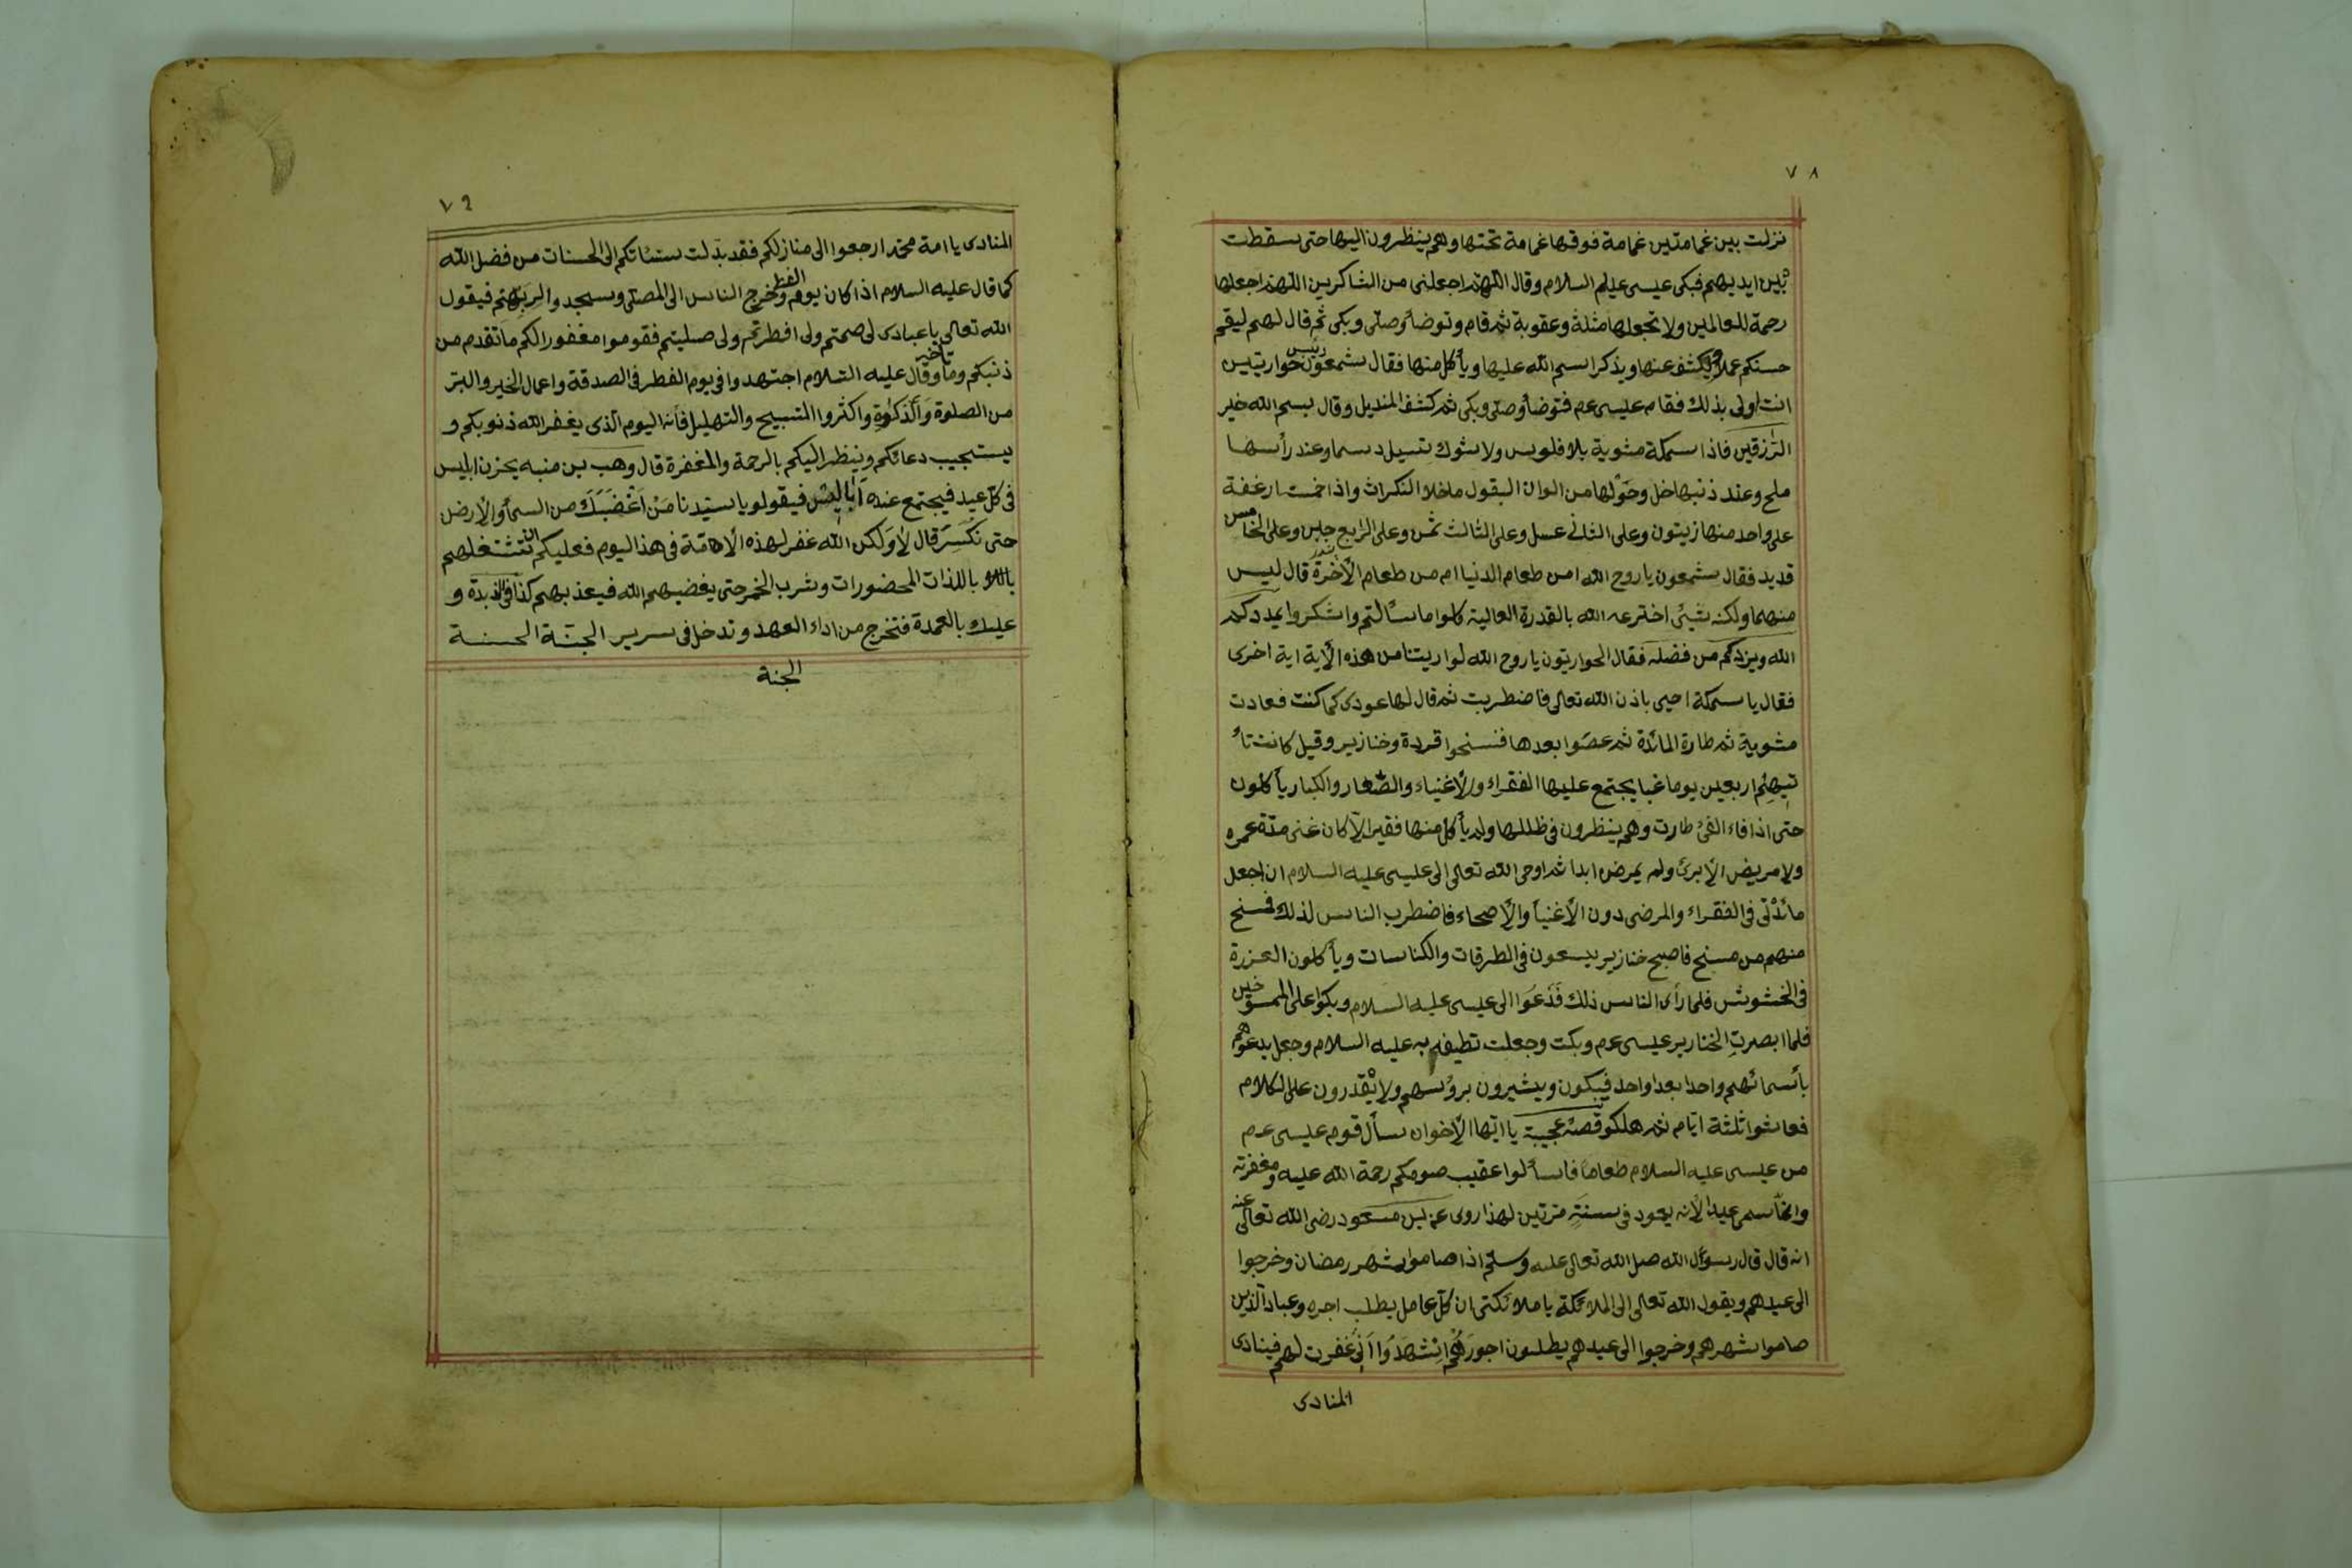 ٧٨
نزلت بين غمامتين غمامة فوقها غمامة تحتها وهم ينظرون اليها حتى سقطت
بين ايديهم فبكى عيسى عليه السلام وقال اللهم اجعلنى من الشاكرين اللهم اجعلها
رحمة للعالمين ولا تجعلها مثلة وعقوبة ثم قام وتوضأ وصلى وبكى ثم قال لهم ليقم
حسنكم عملا ويكشف عنها ويذكر اسم الله عليها ويأكل منها فقال شمعون رئيس حواريين
انت اولى بذلك فقام عيسى عم فتوضأ وصلى وبكى ثم كشف المنديل وقال بسم الله خير
الرزقين فاذا سمكة مشوية بلا فلوس ولا شوك تسيل دسما وعند رأسها
ملح وعند ذنبها خل وحولها من الوان البقول ما خلا الكراث واذا خمست ارغفة
على واحد منها زيتون وعلى الثانى عسل وعلى الثالث سمن وعلى الرابع جبن وعلى الخامس
قديد فقال شمعون يا روح الله امن طعام الدنيا ام من طعام الأخرة قال ليس
منهما ولكنه شيئ اخترعه الله بالقدرة العالية كلوا ما سألتم واشكروا يمددكم
الله ويزدكم من فضله فقال الحواريون يا روح الله لو اريتنا من هذه الأية اية اخرى
فقال يا سمكة احيى باذن الله تعالى فاضطربت ثم قال لها عودى كما كنت فعادت
مشوية ثم طارة المائدة ثم عصوا بعدها فنسخوا قردة وخنازير وقيل كانت تأ
تيهم اربعين يوما غبا يجتمع عليها الفقراء والأغنياء والصغار والكبار يأكلون
حتى اذا فاء الفئ طارت وهم ينظرون فى ظللها ولم يأكل منها فقير الا كان غنى مدة عمره
ولا مريض الا برئ ولم يمرض ابدا ثم اوحى الله تعالى الى عليسى عليه السلام ان اجعل
مائدتى فى الفقراء والمرضى دون الأغنيأ والأصحاء فاضطرب الناس لذلك فمسخ
منهم من مسخ فاصبح خنازير يسعون فى الطرقات والكناسات ويأكلون العزرة
فى الخشوش فلما رأى الناس ذلك فدعوا الى عيسى عليه السلام وبكوا على الممسوخين
فلما ابصرت الخنازير عيسى عم وبكت وجعلت تطيف به عليه السلام وجعل يدعوهم
بأسمائهم واحدا بعد واحد فيبكون ويشيرون برؤسهم ولا يقدرون على الكلام
فعاشوا ثلثة ايام ثم هلكو قصة عجيبة يا ايها الأخوان سأل قوم عيسى عم
من عيسى عليه السلام طعاما فاسألوا عقيب صومكم رحمة الله عليه ومغفرته
وانما سمى عيدا لأنه يعود فى سنة مرتين لهذا روى عن ابن مسعود رضى الله تعالى عنه
انه قال قال رسول الله صلى الله تعالى عليه وسلم اذا صاموا شهر رمضان وخرجوا
الى عيدهم ويقول الله تعالى الى الملائكة يا ملائكتى ان كل عامل يطلب اجره وعباد الذين
صاموا شهرهم وخرجوا الى عيدهم يطلبون اجورهم اشهدوا انى غفرت لهم فينادى
المنادى
٧٩
المنادى يا امة محمد ارجعوا الى منازلكم فقد بدلت سيئاتكم الى الحسنات من فضل الله
كما قال عليه السلام اذا كان يوم الفطر وخرج الناس الى المصلى وسجدوا لربهم فيقول
الله تعالى يا عبادى لى صمتم ولى افطرتم ولى صليتم فقوموا مغفورا لكم ما تقدم من
ذنبكم وما تأخير وقال عليه السلام اجتهدوا فى يوم الفطر فى الصدقة واعمال الخير والبر
من الصلوة والذكوة واكثروا التسبيح والتهليل فأنه اليوم الذى يغفر الله ذنوبكم و
يستجيب دعائكم وينظر اليكم بالرحمة والمغفرة قال وهب بن منبه يحزن ابليس
فى كل عيد فيجتمع عنده اباليس فيقولو يا سيدنا من اغضبك من السمأ والأرض
حتى نكسر قال لا ولكن الله غفر لهذه الأمة فى هذا اليوم فعليكم ان تشغلهم
باللذات المحضورات وشرب الخمر حتى يغضبهم الله فيعذبهم كذا فى الزبدة و
عليك بالعمدة فتخرج من اداء العهد وتدخل فى سرير الجنة الحسنة
الجنة